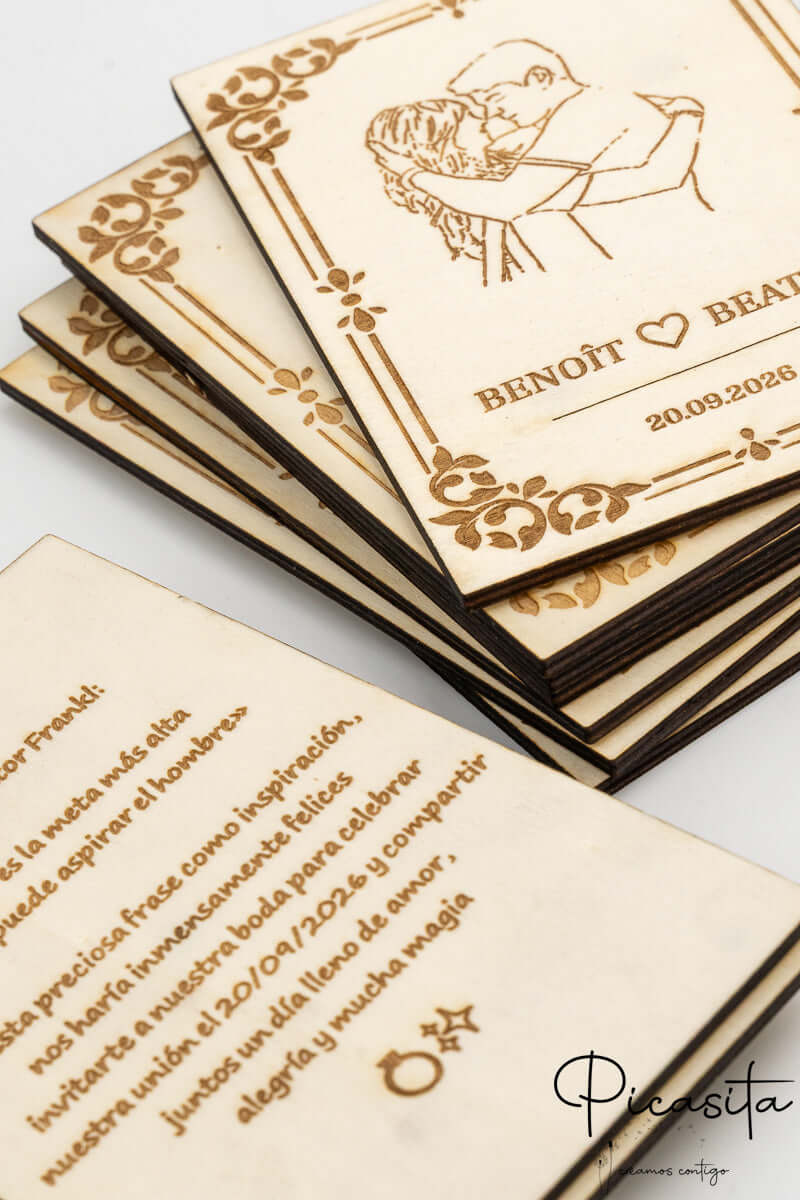 BENOÎT ♡ BEAT
20.09.2026
tor Frankl:
es la meta más alta
puede aspirar el hombre»
sta preciosa frase como inspiración,
nos haría inmensamente felices
invitarte a nuestra boda para celebrar
nuestra unión el 20/09/2026 y compartir
juntos un día lleno de amor,
alegría y mucha magia
Picasita
creamos contigo